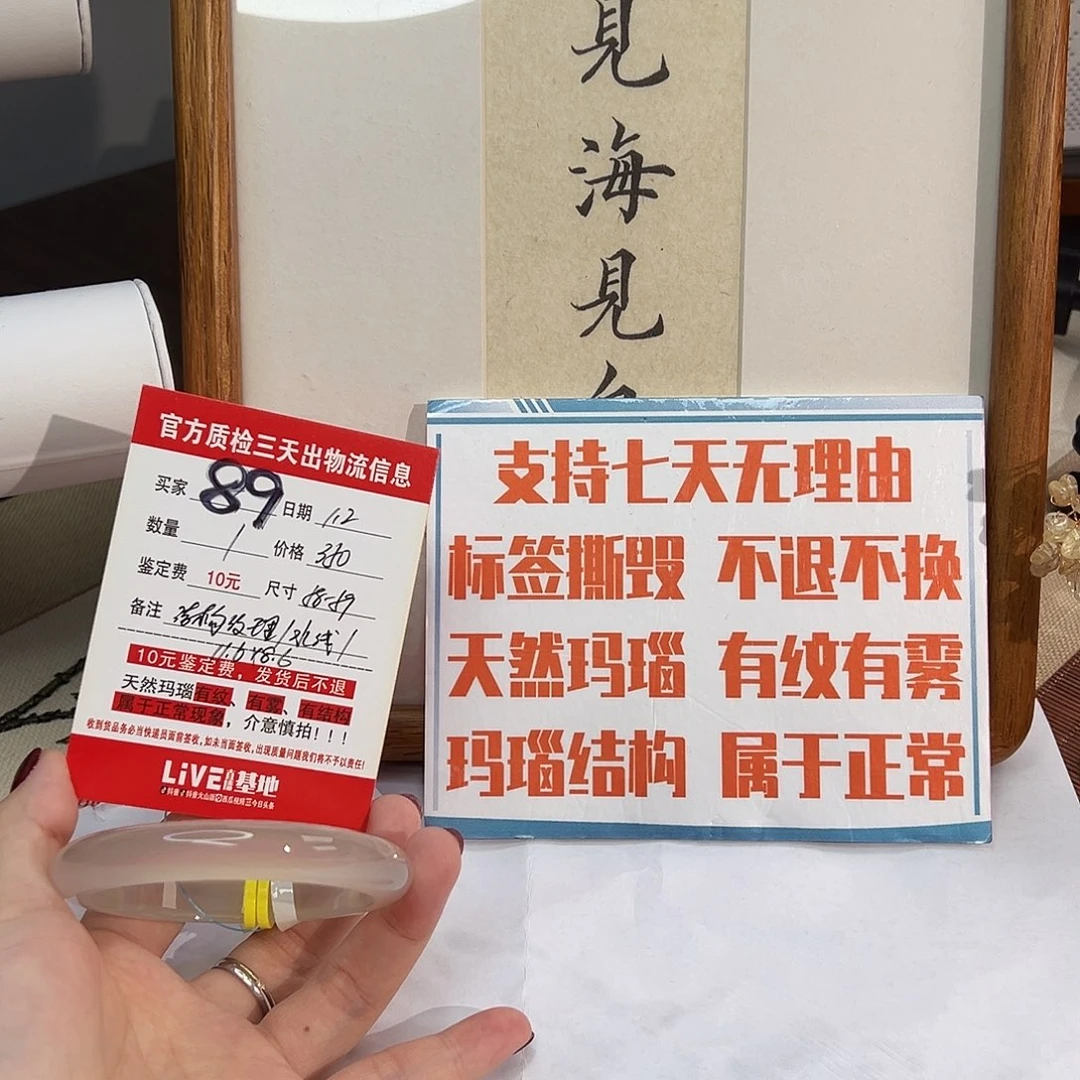 見
海
見
官方质检三天出物流信息
买家 89 日期 1.2
数量 1 价格 350
鉴定费 10元 尺寸 58-59
备注 结构纹理/水线/
11.6*8.6
10元鉴定费，发货后不退
天然玛瑙有纹、有雾、有结构
属于正常现象，介意慎拍！！！
收到货品务必当快递员面前签收，如未当面签收，出现质量问题我们将不予以责任！
LiVE 基地
抖音 抖音火山版 西瓜视频 今日头条
支持七天无理由
标签撕毁 不退不换
天然玛瑙 有纹有雾
玛瑙结构 属于正常